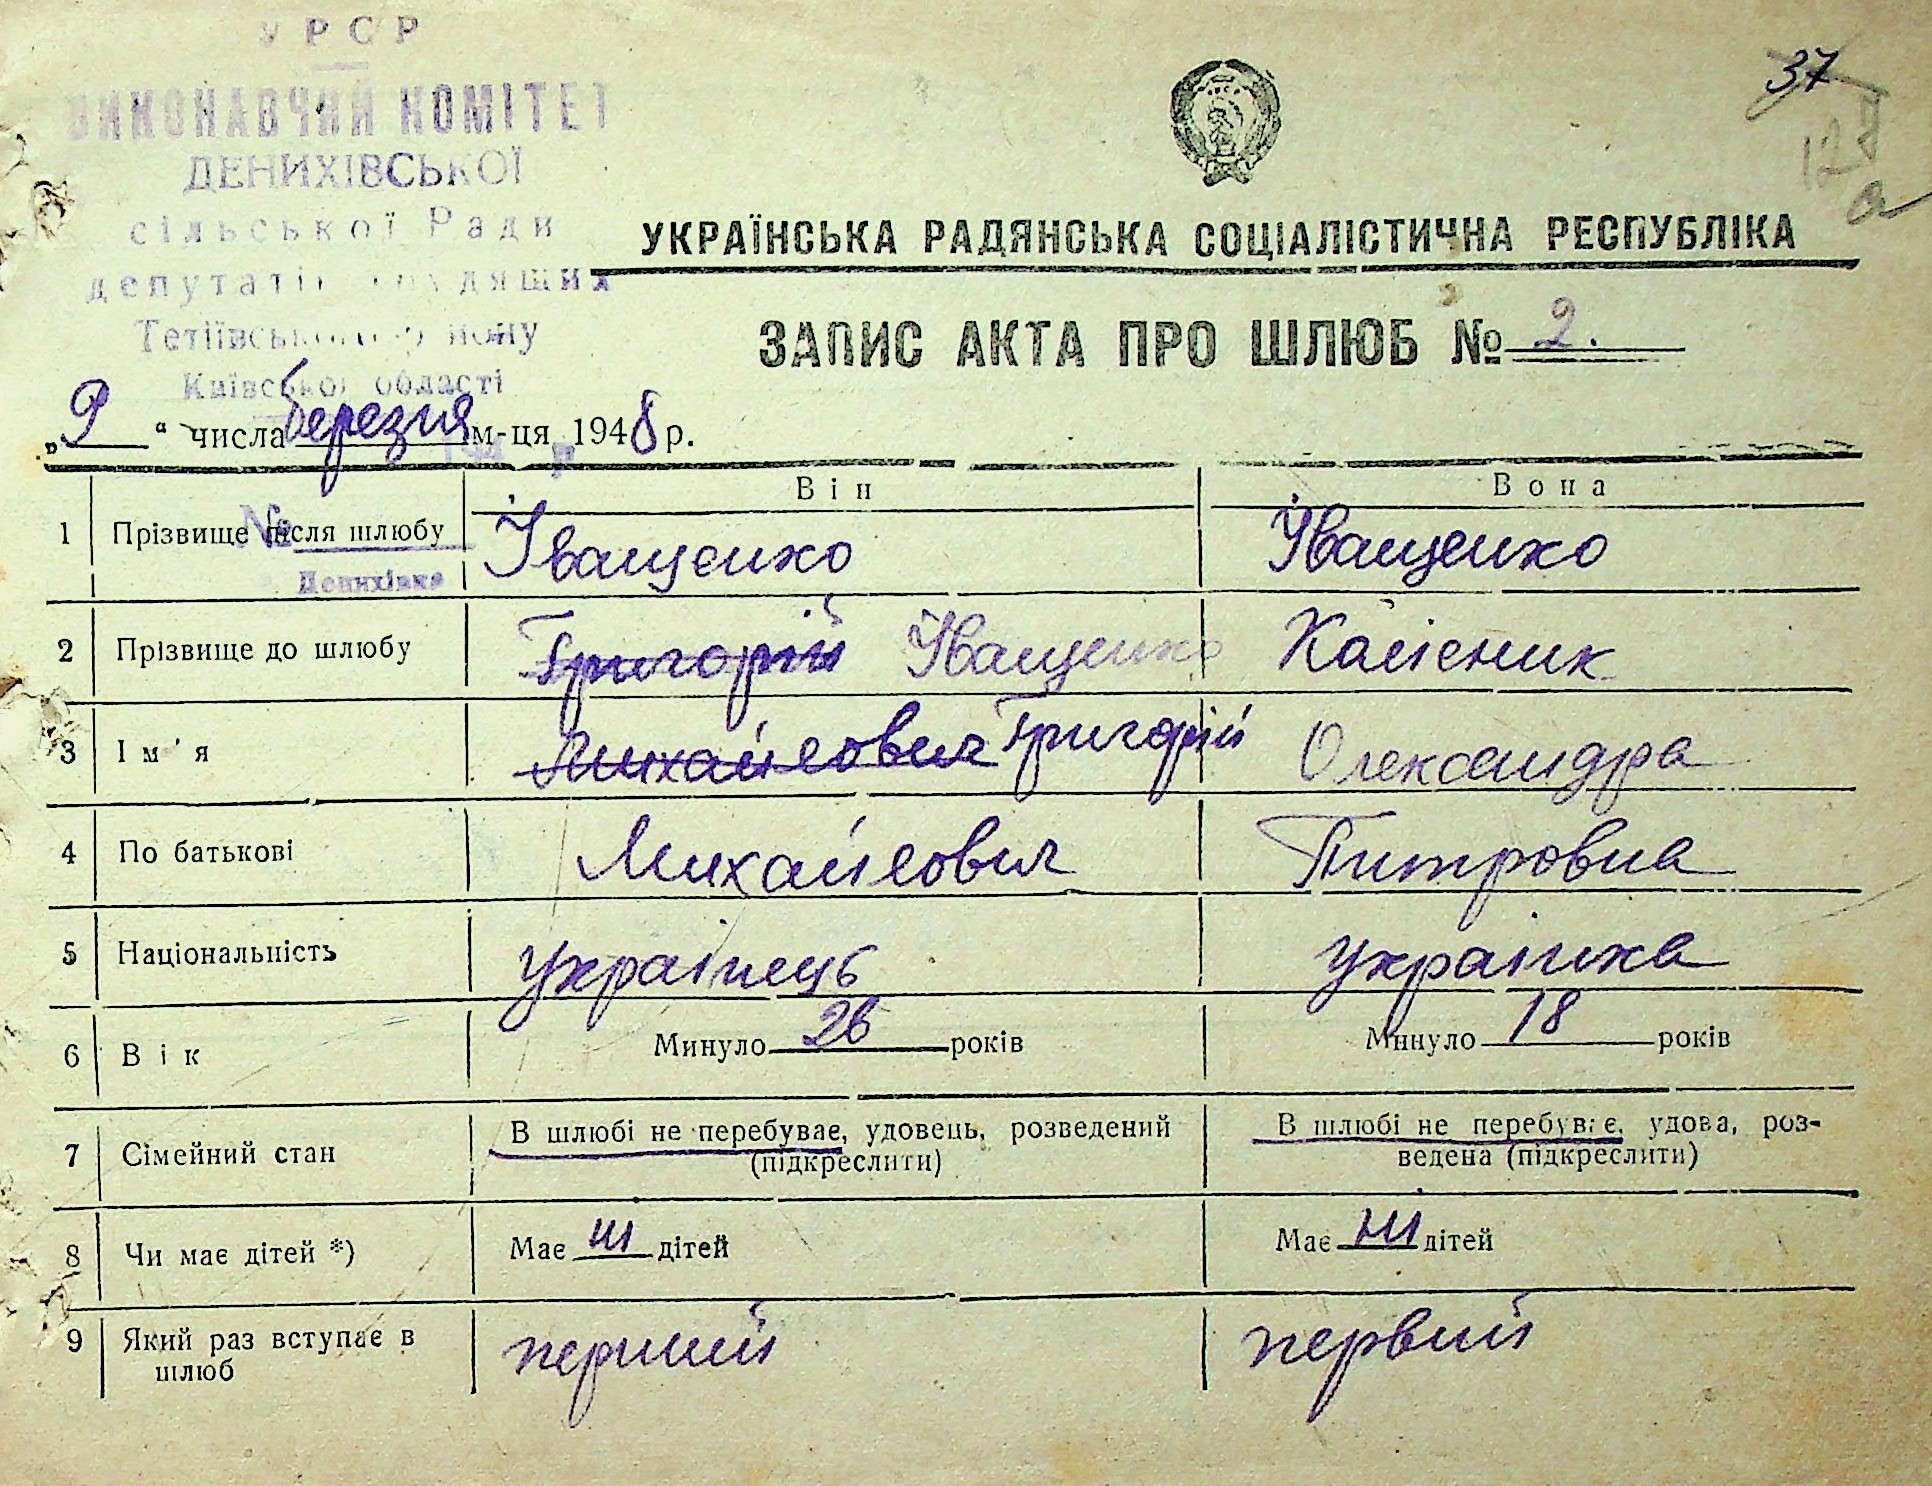 УРСР
ВИКОНАВЧИЙ КОМІТЕТ
ДЕНИХІВСЬКОЇ
сільської Ради
депутатів трудящих
Тетіївського району
Київської області
37
УКРАЇНСЬКА РАДЯНСЬКА СОЦІАЛІСТИЧНА РЕСПУБЛІКА
ЗАПИС АКТА ПРО ШЛЮБ № 2.
„9“ числа березня м-ця 1948 р.
Він Вона
1 Прізвище після шлюбу Іващенко Іващенко
№
Денихівка
2 Прізвище до шлюбу Григорій Іващенко Колісник
3 Ім'я Михайлович Григорій Олександра
4 По батькові Михайлович Питровна
5 Національність українець українка
6 Вік Минуло 26 років Минуло 18 років
7 Сімейний стан В шлюбі не перебуває, удовець, розведений (підкреслити) В шлюбі не перебуває, удова, роз-
ведена (підкреслити)
8 Чи має дітей *) Має ні дітей Має ні дітей
9 Який раз вступає в шлюб перший первий